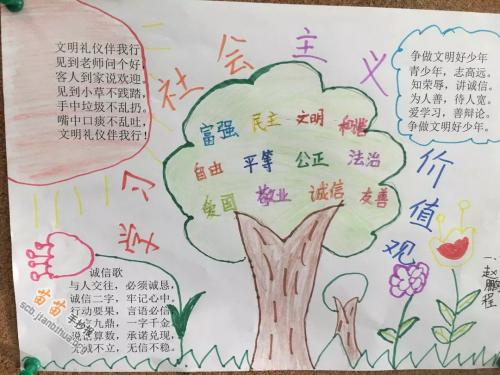 文明礼仪伴我行
见到老师问个好,
客人到家说欢迎,
见到小草不践踏,
手中垃圾不乱扔。
嘴中口痰不乱吐,
文明礼仪伴我行!
学习社会主义价值观
争做文明好少年
青少年,志高远。
知荣辱,讲诚信。
为人善,待人宽。
爱学习,善辩论。
争做文明好少年。
富强 民主 文明 和谐
自由 平等 公正 法治
爱国 敬业 诚信 友善
诚信歌
与人交往,必须诚恳,
诚信二字,牢记心中。
行动要果,言语必信,
一言九鼎,一字千金。
说话算数,承诺兑现,
无诚不立,无信不稳。
苗苗手抄报
scb.jianbihua
赵鹏程